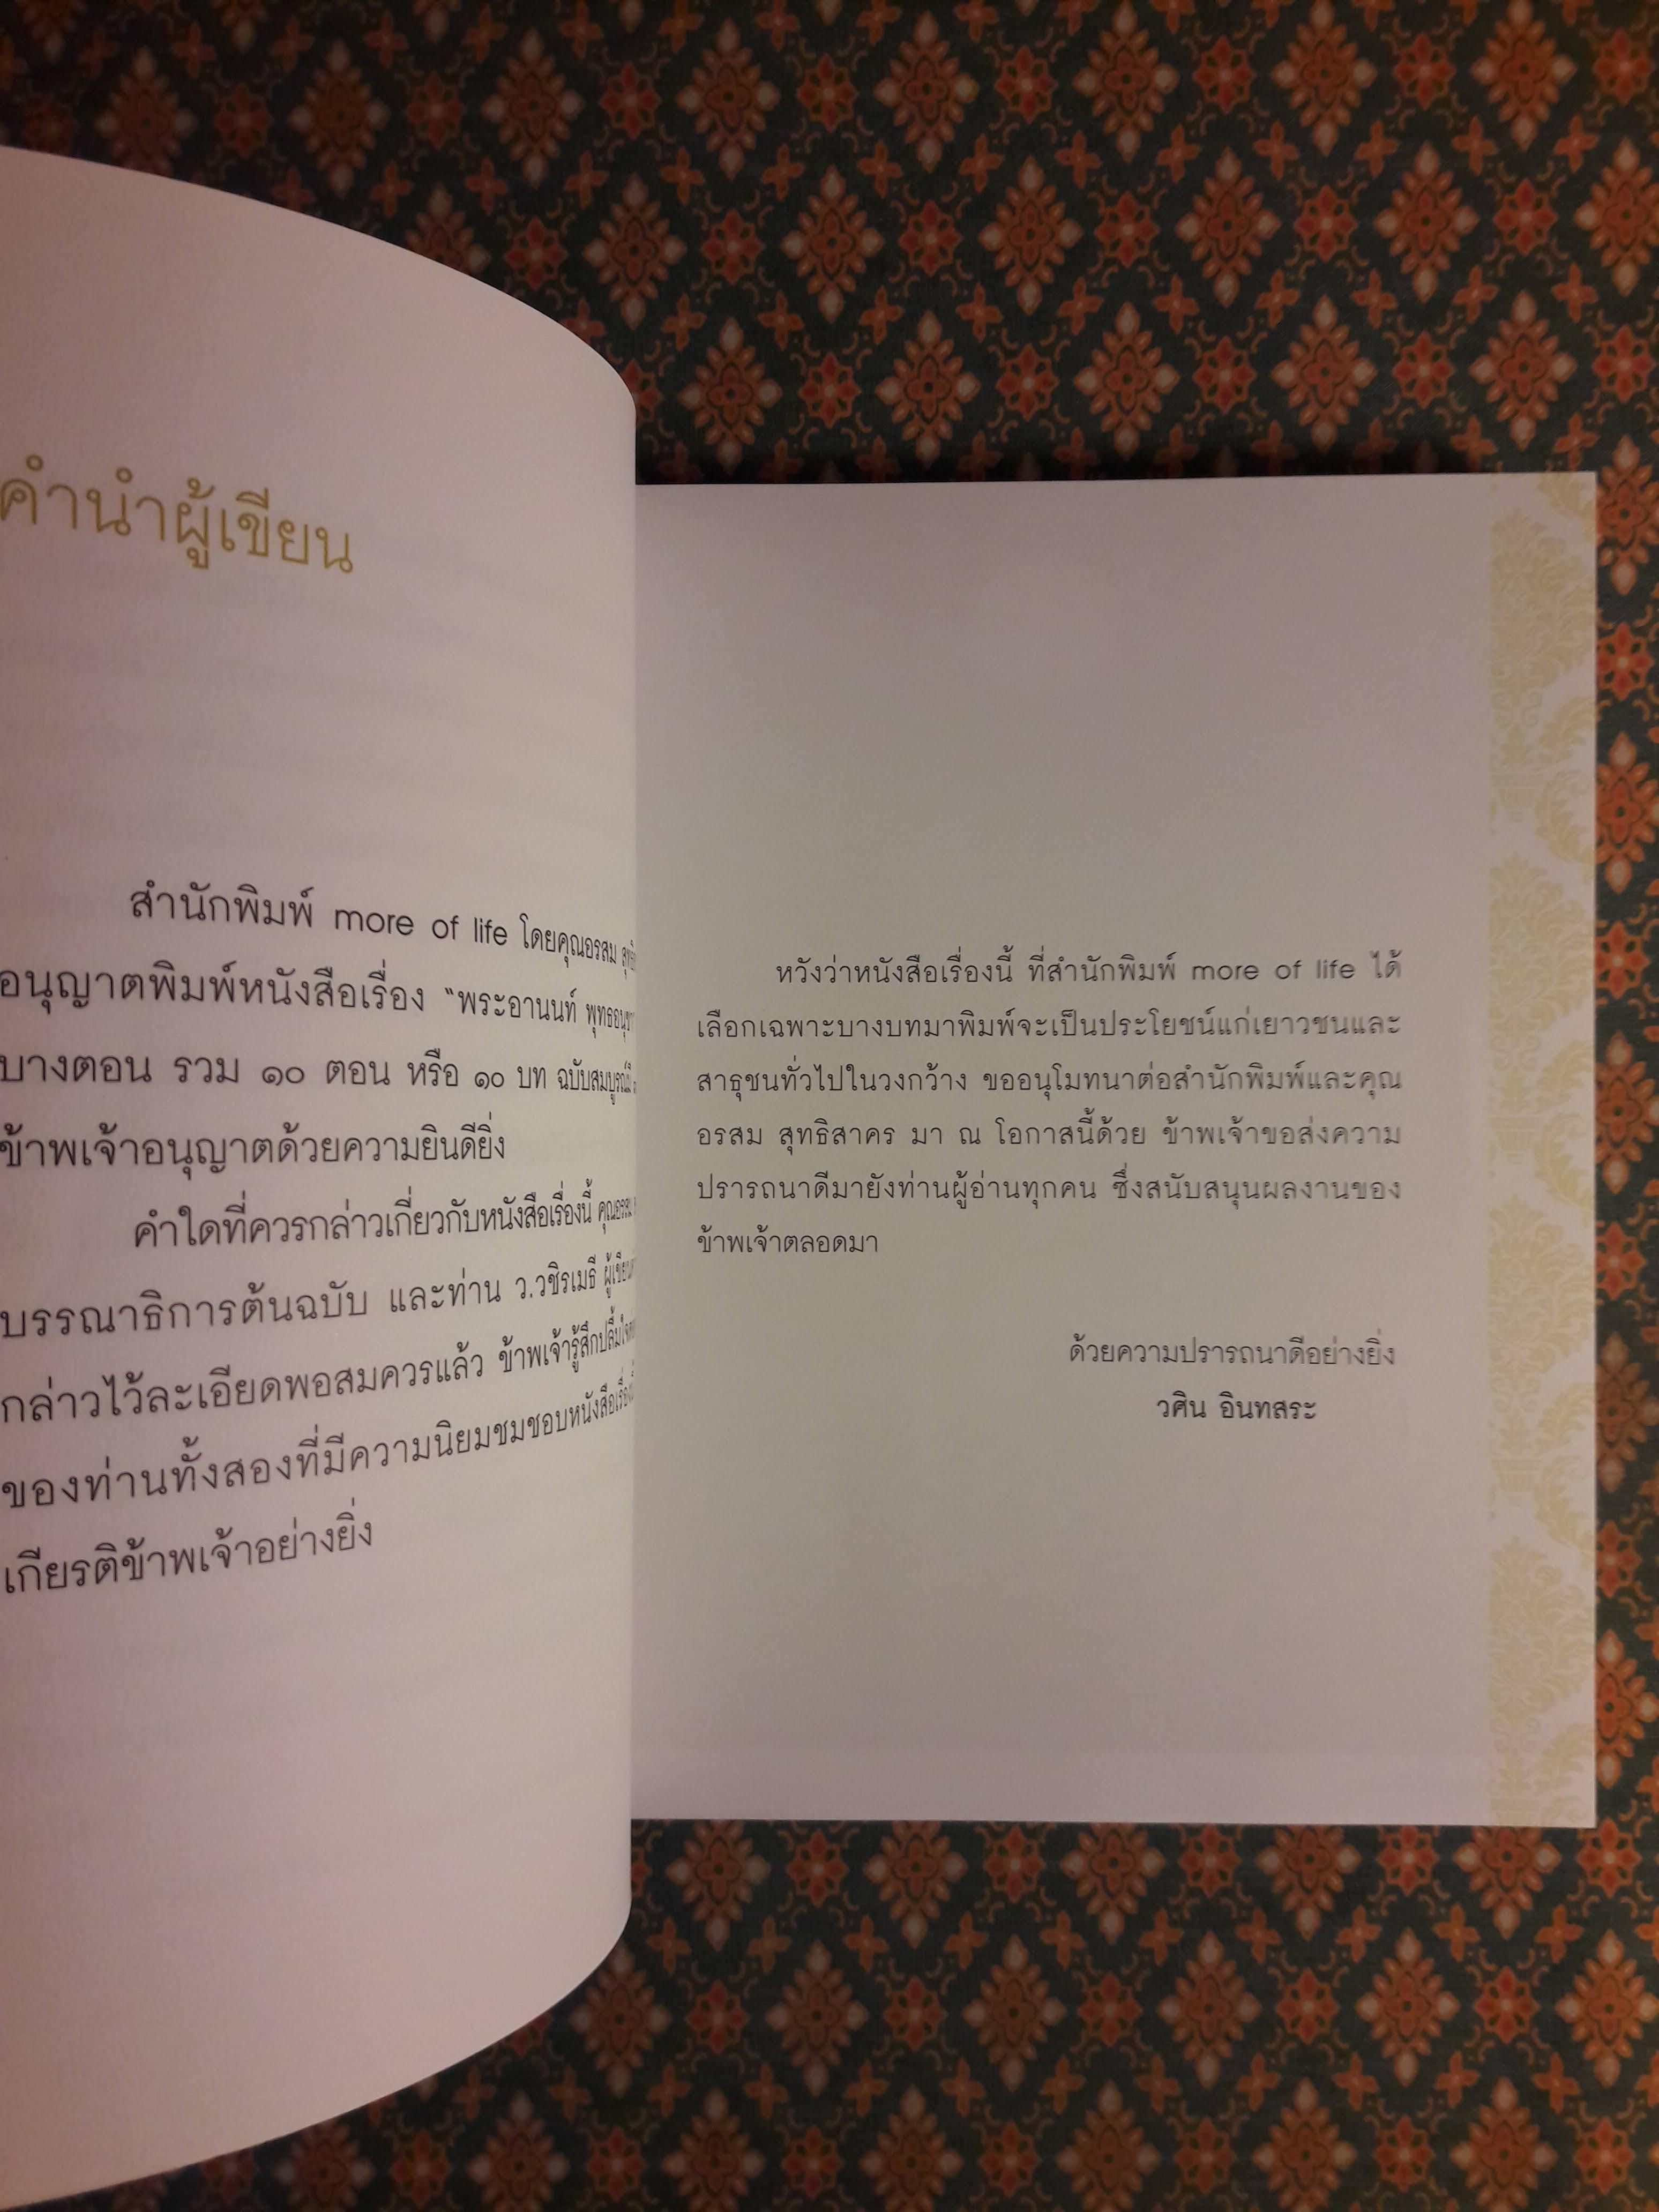 คำนำผู้เขียน
สำนักพิมพ์ more of life โดยคุณอรสม
อนุญาตพิมพ์หนังสือเรื่อง "พระอานนท์ พุทธอนุชา
บางตอน รวม ๑๐ ตอน หรือ ๑๐ บท ฉบับสมบูรณ์มี
ข้าพเจ้าอนุญาตด้วยความยินดียิ่ง
คำใดที่ควรกล่าวเกี่ยวกับหนังสือเรื่องนี้ คุณอรสม
บรรณาธิการต้นฉบับ และท่าน ว.วชิรเมธี
กล่าวไว้ละเอียดพอสมควรแล้ว ข้าพเจ้ารู้สึกปลื้มใจ
ของท่านทั้งสองที่มีความนิยมชมชอบหนังสือเรื่องนี้
เกียรติข้าพเจ้าอย่างยิ่ง
หวังว่าหนังสือเรื่องนี้ ที่สำนักพิมพ์ more of life ได้
เลือกเฉพาะบางบทมาพิมพ์จะเป็นประโยชน์แก่เยาวชนและ
สาธุชนทั่วไปในวงกว้าง ขออนุโมทนาต่อสำนักพิมพ์และคุณ
อรสม สุทธิสาคร มา ณ โอกาสนี้ด้วย ข้าพเจ้าขอส่งความ
ปรารถนาดีมายังท่านผู้อ่านทุกคน ซึ่งสนับสนุนผลงานของ
ข้าพเจ้าตลอดมา
ด้วยความปรารถนาดีอย่างยิ่ง
วศิน อินทสระ